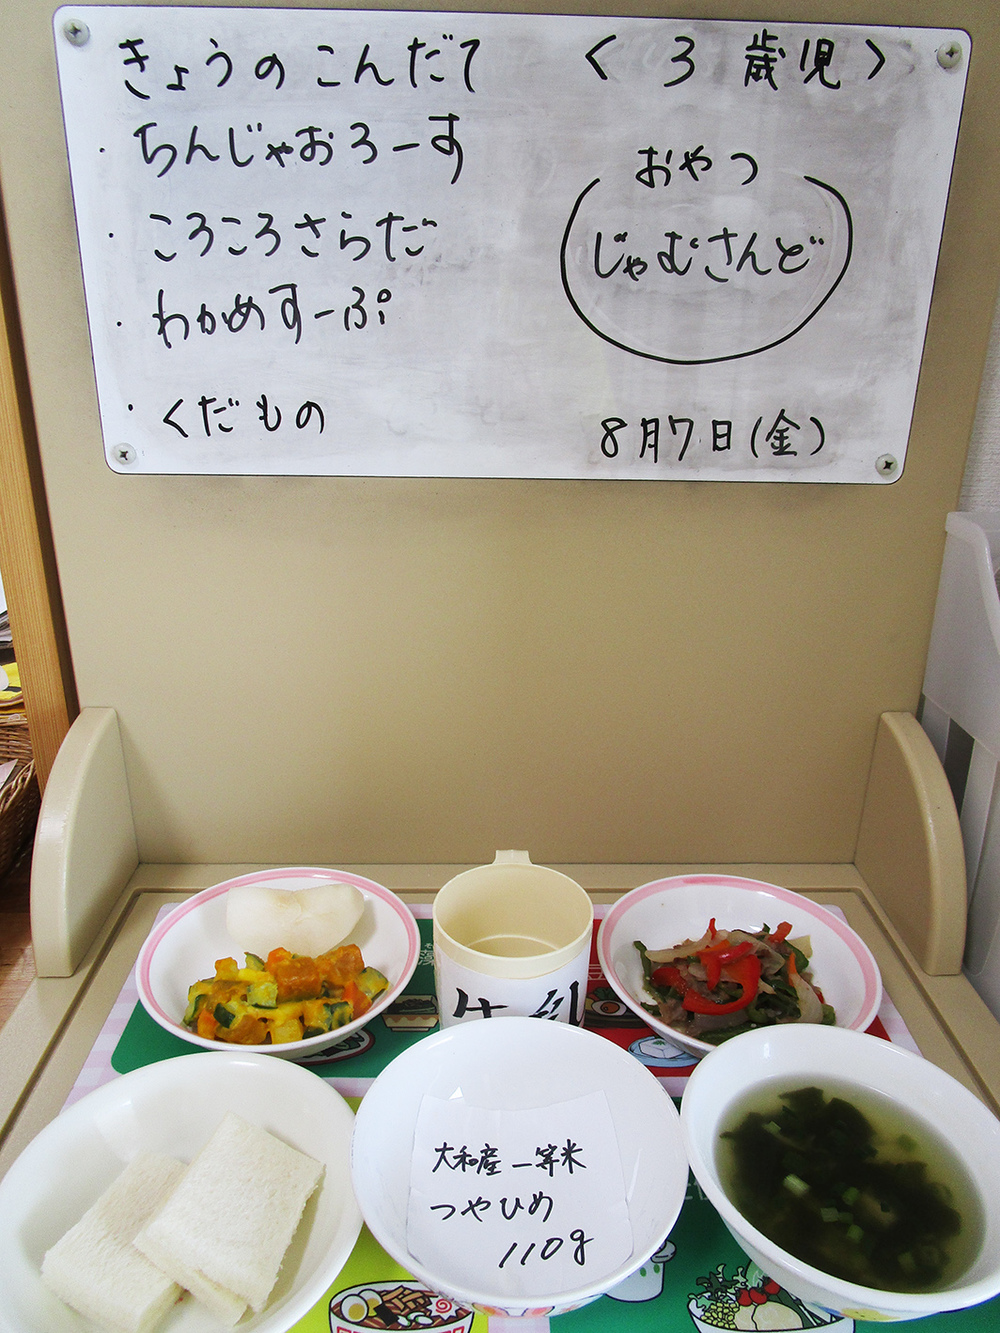 きょうのこんだて
・ちんじゃおろーす
・ころころさらだ
・わかめすーぷ
・くだもの
〈３歳児〉
おやつ
じゃむさんど
8月7日(金)
牛乳
大和産一等米
つやひめ
110g